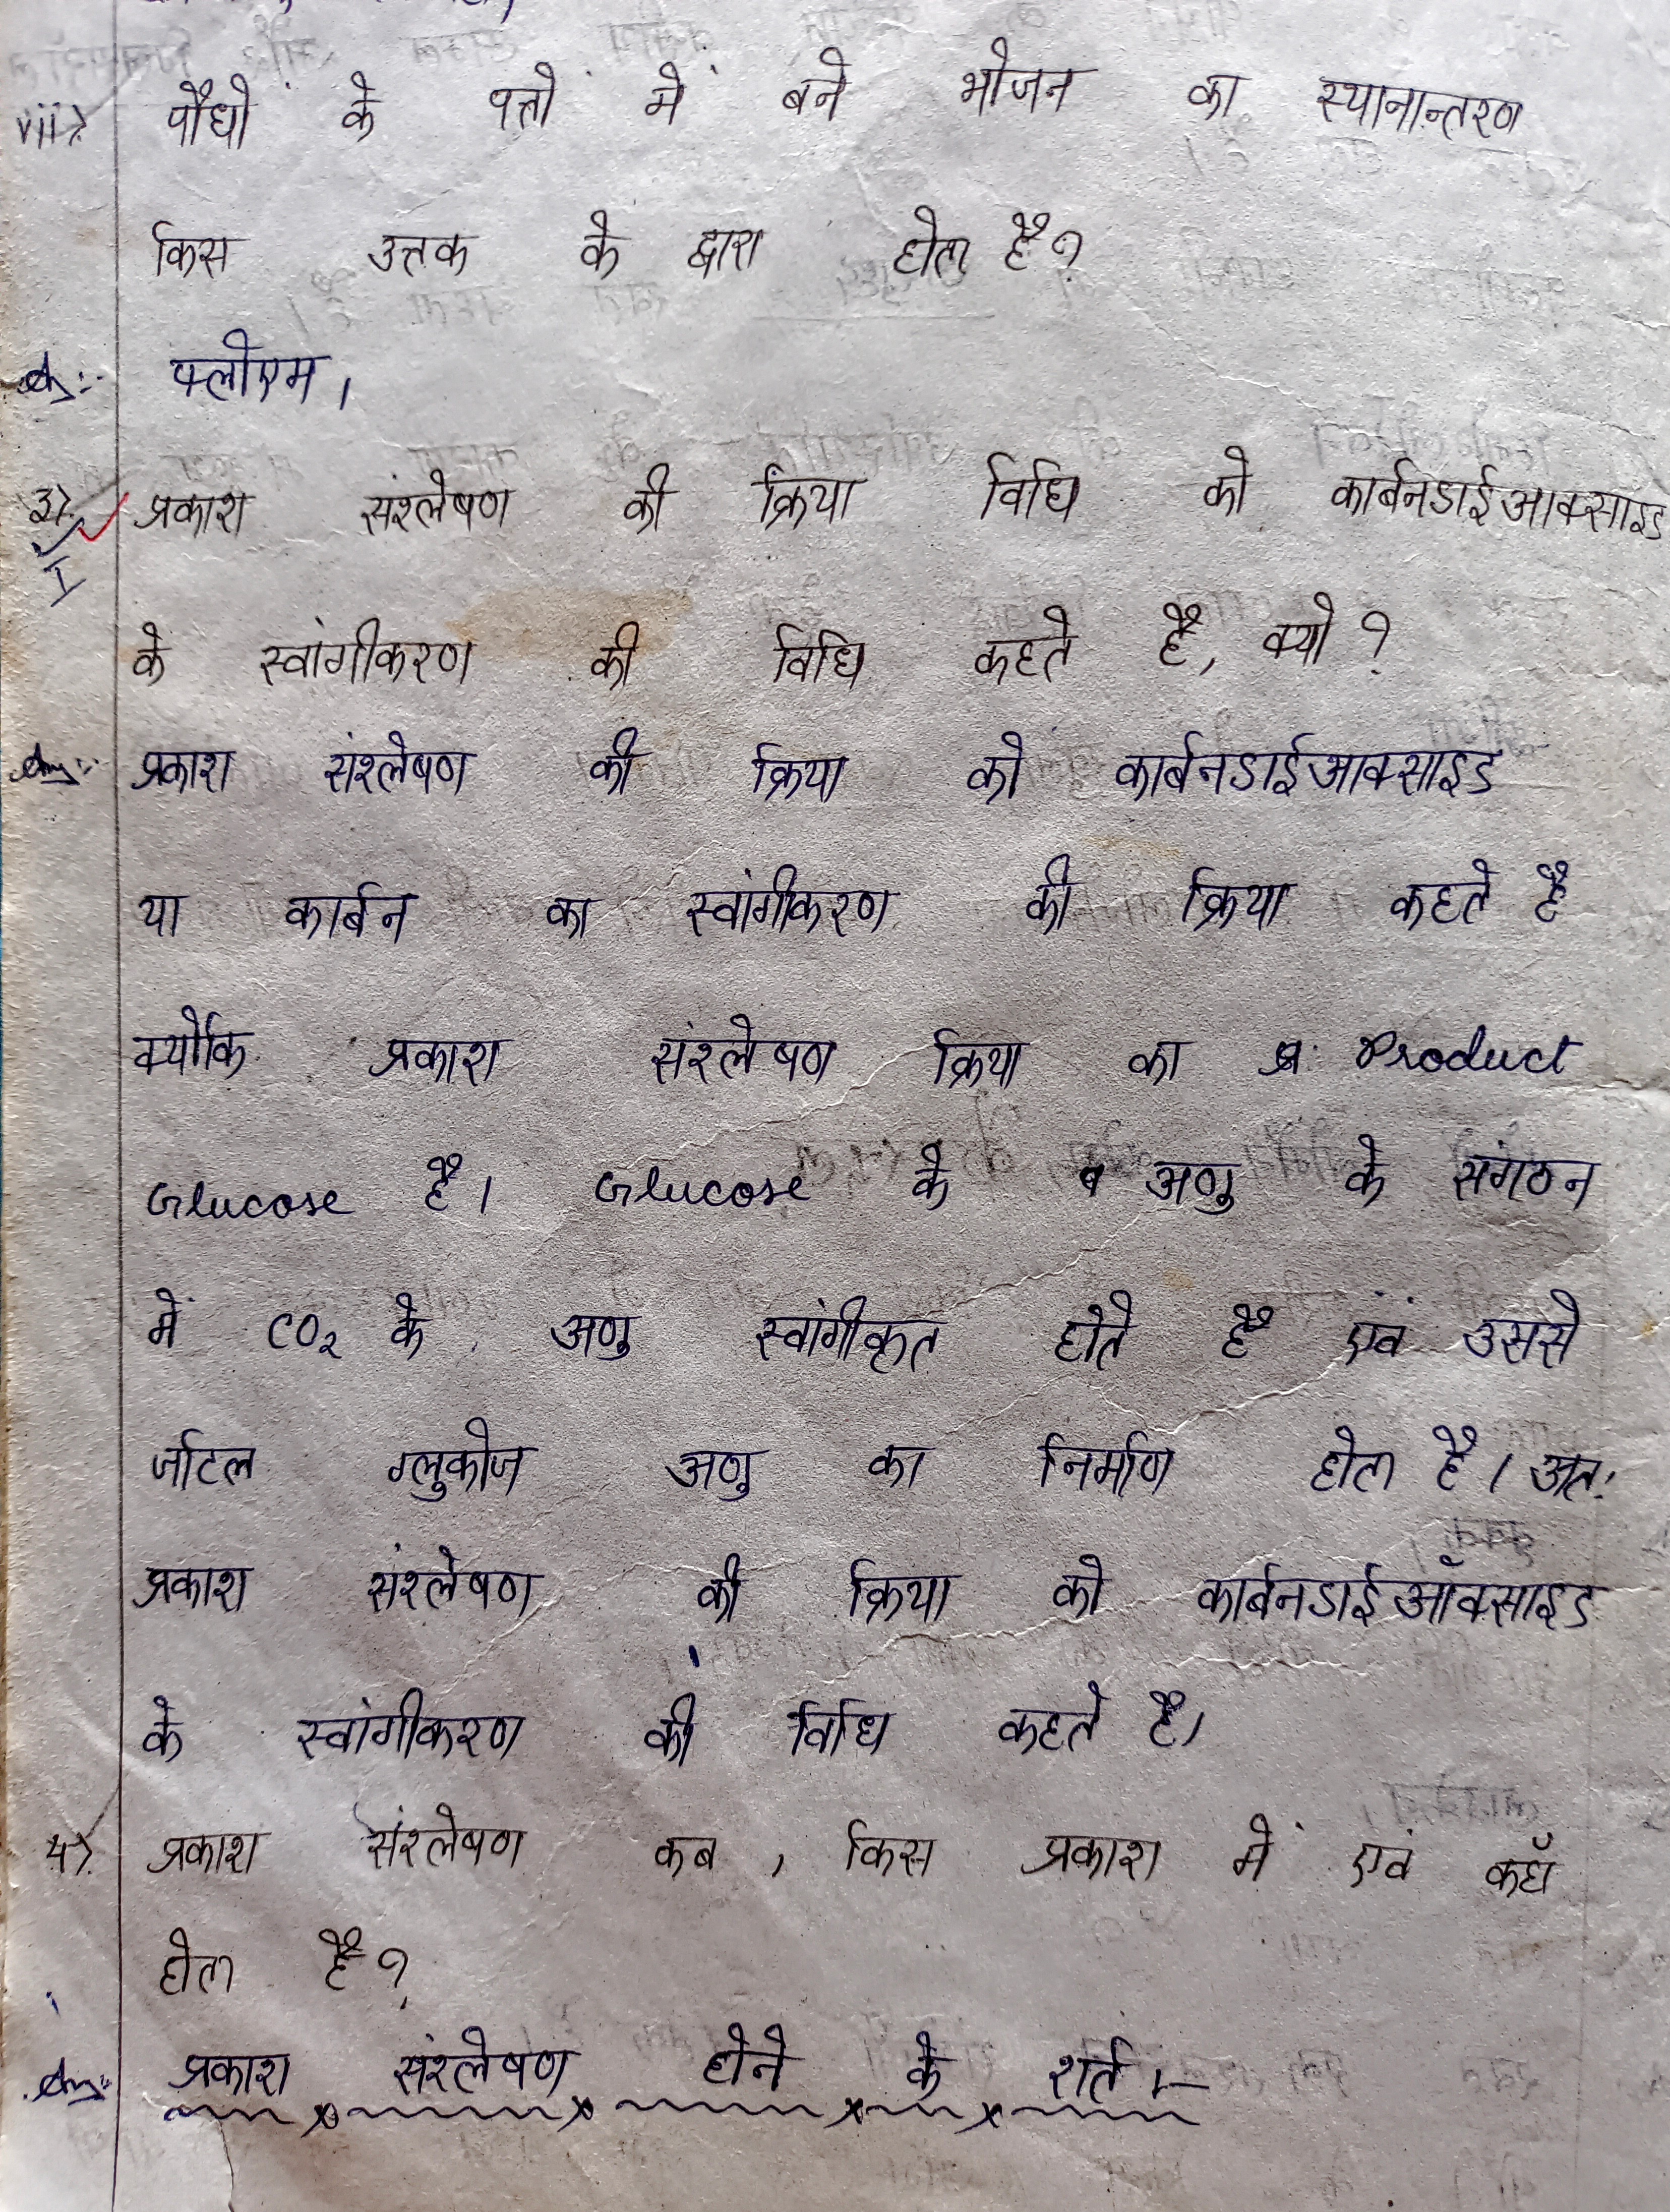 vii> पौधों के पत्तों में बने भोजन का स्थानान्तरण
किस उत्तक के द्वारा होता है?
फ्लोएम।
3> प्रकाश संश्लेषण की क्रिया विधि को कार्बनडाईआक्साइड
I
के स्वांगीकरण की विधि कहते है, क्यों?
Ans:- प्रकाश संश्लेषण की क्रिया को कार्बनडाईआक्साइड
या कार्बन का स्वांगीकरण की क्रिया कहते है
क्योंकि प्रकाश संश्लेषण क्रिया का Product
Glucose है। Glucose के अणु के संगठन
में CO₂ के अणु स्वांगीकृत होते है एवं उससे
जटिल ग्लुकोज अणु का निर्माण होता है। अतः
प्रकाश संश्लेषण की क्रिया को कार्बनडाईऑक्साइड
के स्वांगीकरण की विधि कहते है।
4> प्रकाश संश्लेषण कब, किस प्रकाश में एवं कहाँ
होता है?
Ans:- प्रकाश संश्लेषण होने के शर्त :-